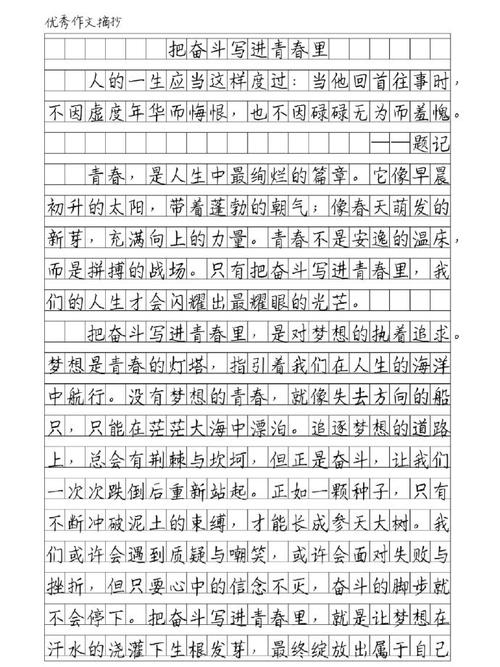 优秀作文摘抄
把奋斗写进青春里
人的一生应当这样度过：当他回首往事时，
不因虚度年华而悔恨，也不因碌碌无为而羞愧。
——题记
青春，是人生中最绚烂的篇章。它像早晨
初升的太阳，带着蓬勃的朝气；像春天萌发的
新芽，充满向上的力量。青春不是安逸的温床，
而是拼搏的战场。只有把奋斗写进青春里，我
们的人生才会闪耀出最耀眼的光芒。
把奋斗写进青春里，是对梦想的执着追求。
梦想是青春的灯塔，指引着我们在人生的海洋
中航行。没有梦想的青春，就像失去方向的船
只，只能在茫茫大海中漂泊。追逐梦想的道路
上，总会有荆棘与坎坷，但正是奋斗，让我们
一次次跌倒后重新站起。正如一颗种子，只有
不断冲破泥土的束缚，才能长成参天大树。我
们或许会遇到质疑与嘲笑，或许会面对失败与
挫折，但只要心中的信念不灭，奋斗的脚步就
不会停下。把奋斗写进青春里，就是让梦想在
汗水的浇灌下生根发芽，最终绽放出属于自己